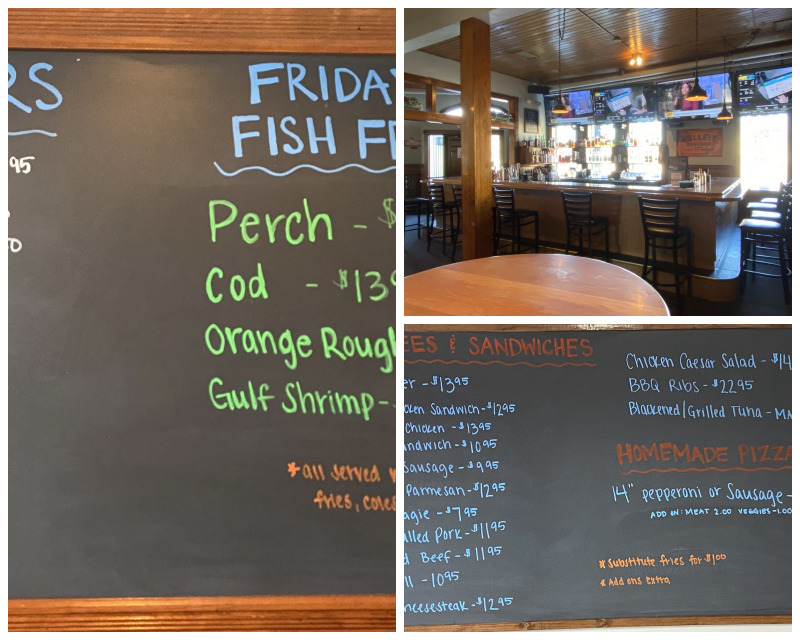 RS
95
0
FRIDAY
FISH FR
Perch - $
Cod - $139
Orange Rough
Gulf Shrimp -
*all served w
fries, coles
EES & SANDWICHES
er - $13.95
cken Sandwich - $12.95
Chicken - $13.95
ndwich - $10.95
Sausage - $9.95
Parmesan - $12.95
agie - $7.95
lled Pork - $11.95
d Beef - $11.95
ll - 10.95
heesesteak - $12.95
Chicken Caesar Salad - $14
BBQ Ribs - $22.95
Blackened/Grilled Tuna - MA
HOMEMADE PIZZA
14" pepperoni or Sausage -
ADD ON: MEAT 2.00 VEGGIES-1.00
* Substitute fries for $1.00
* Add ons extra